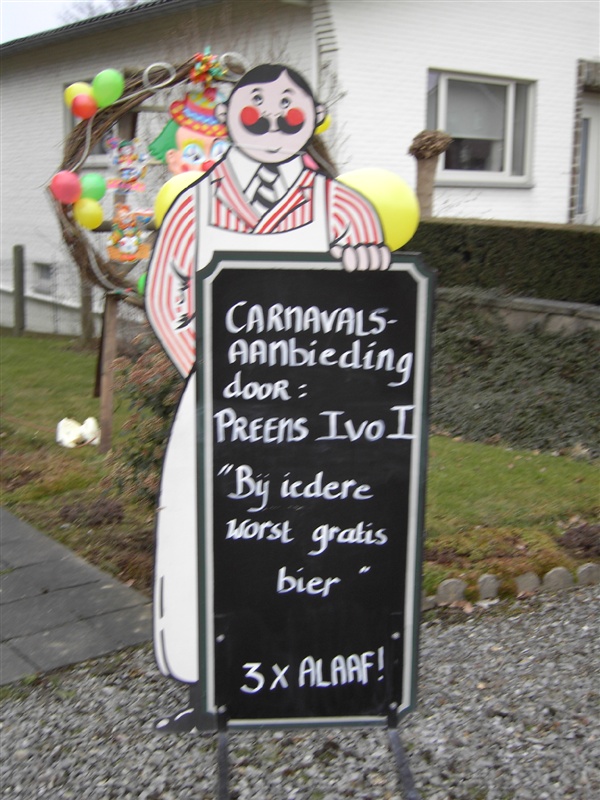 CARNAVALS-
AANBIEDING
DOOR:
PREENS IVO I
"Bij iedere
worst gratis
bier"
3 X ALAAF!